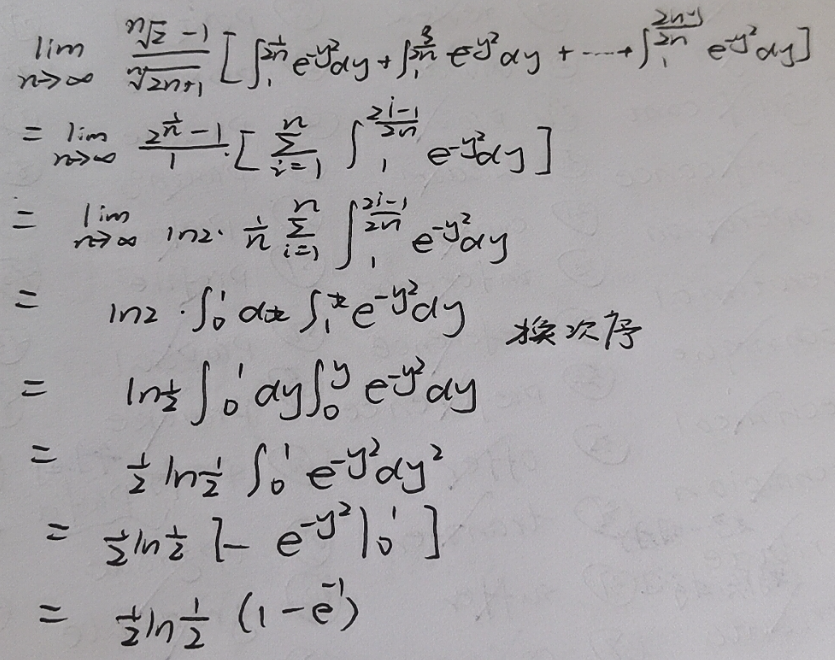 lim_{n→∞} \frac{\sqrt[n]{2} - 1}{\sqrt[n]{2n+1}} [ ∫_1^{\frac{1}{2n}} e^{-y^2} dy + ∫_1^{\frac{3}{2n}} e^{-y^2} dy + ⋯ + ∫_1^{\frac{2n-1}{2n}} e^{-y^2} dy ]
= lim_{n→∞} \frac{2^{\frac{1}{n}} - 1}{1} · [ ∑_{i=1}^{n} ∫_1^{\frac{2i-1}{2n}} e^{-y^2} dy ]
= lim_{n→∞} ln2 · \frac{1}{n} ∑_{i=1}^{n} ∫_1^{\frac{2i-1}{2n}} e^{-y^2} dy
= ln2 · ∫_0^1 dx ∫_1^x e^{-y^2} dy 换次序
= ln\frac{1}{2} ∫_0^1 dy ∫_0^y e^{-y^2} dy
= \frac{1}{2} ln\frac{1}{2} ∫_0^1 e^{-y^2} dy^2
= \frac{1}{2} ln\frac{1}{2} [ - e^{-y^2} |_0^1 ]
= \frac{1}{2} ln\frac{1}{2} (1 - e^{-1})